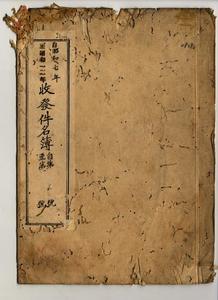 自昭和七年
至昭和一二年
收發件名簿
自第
至第
號
號